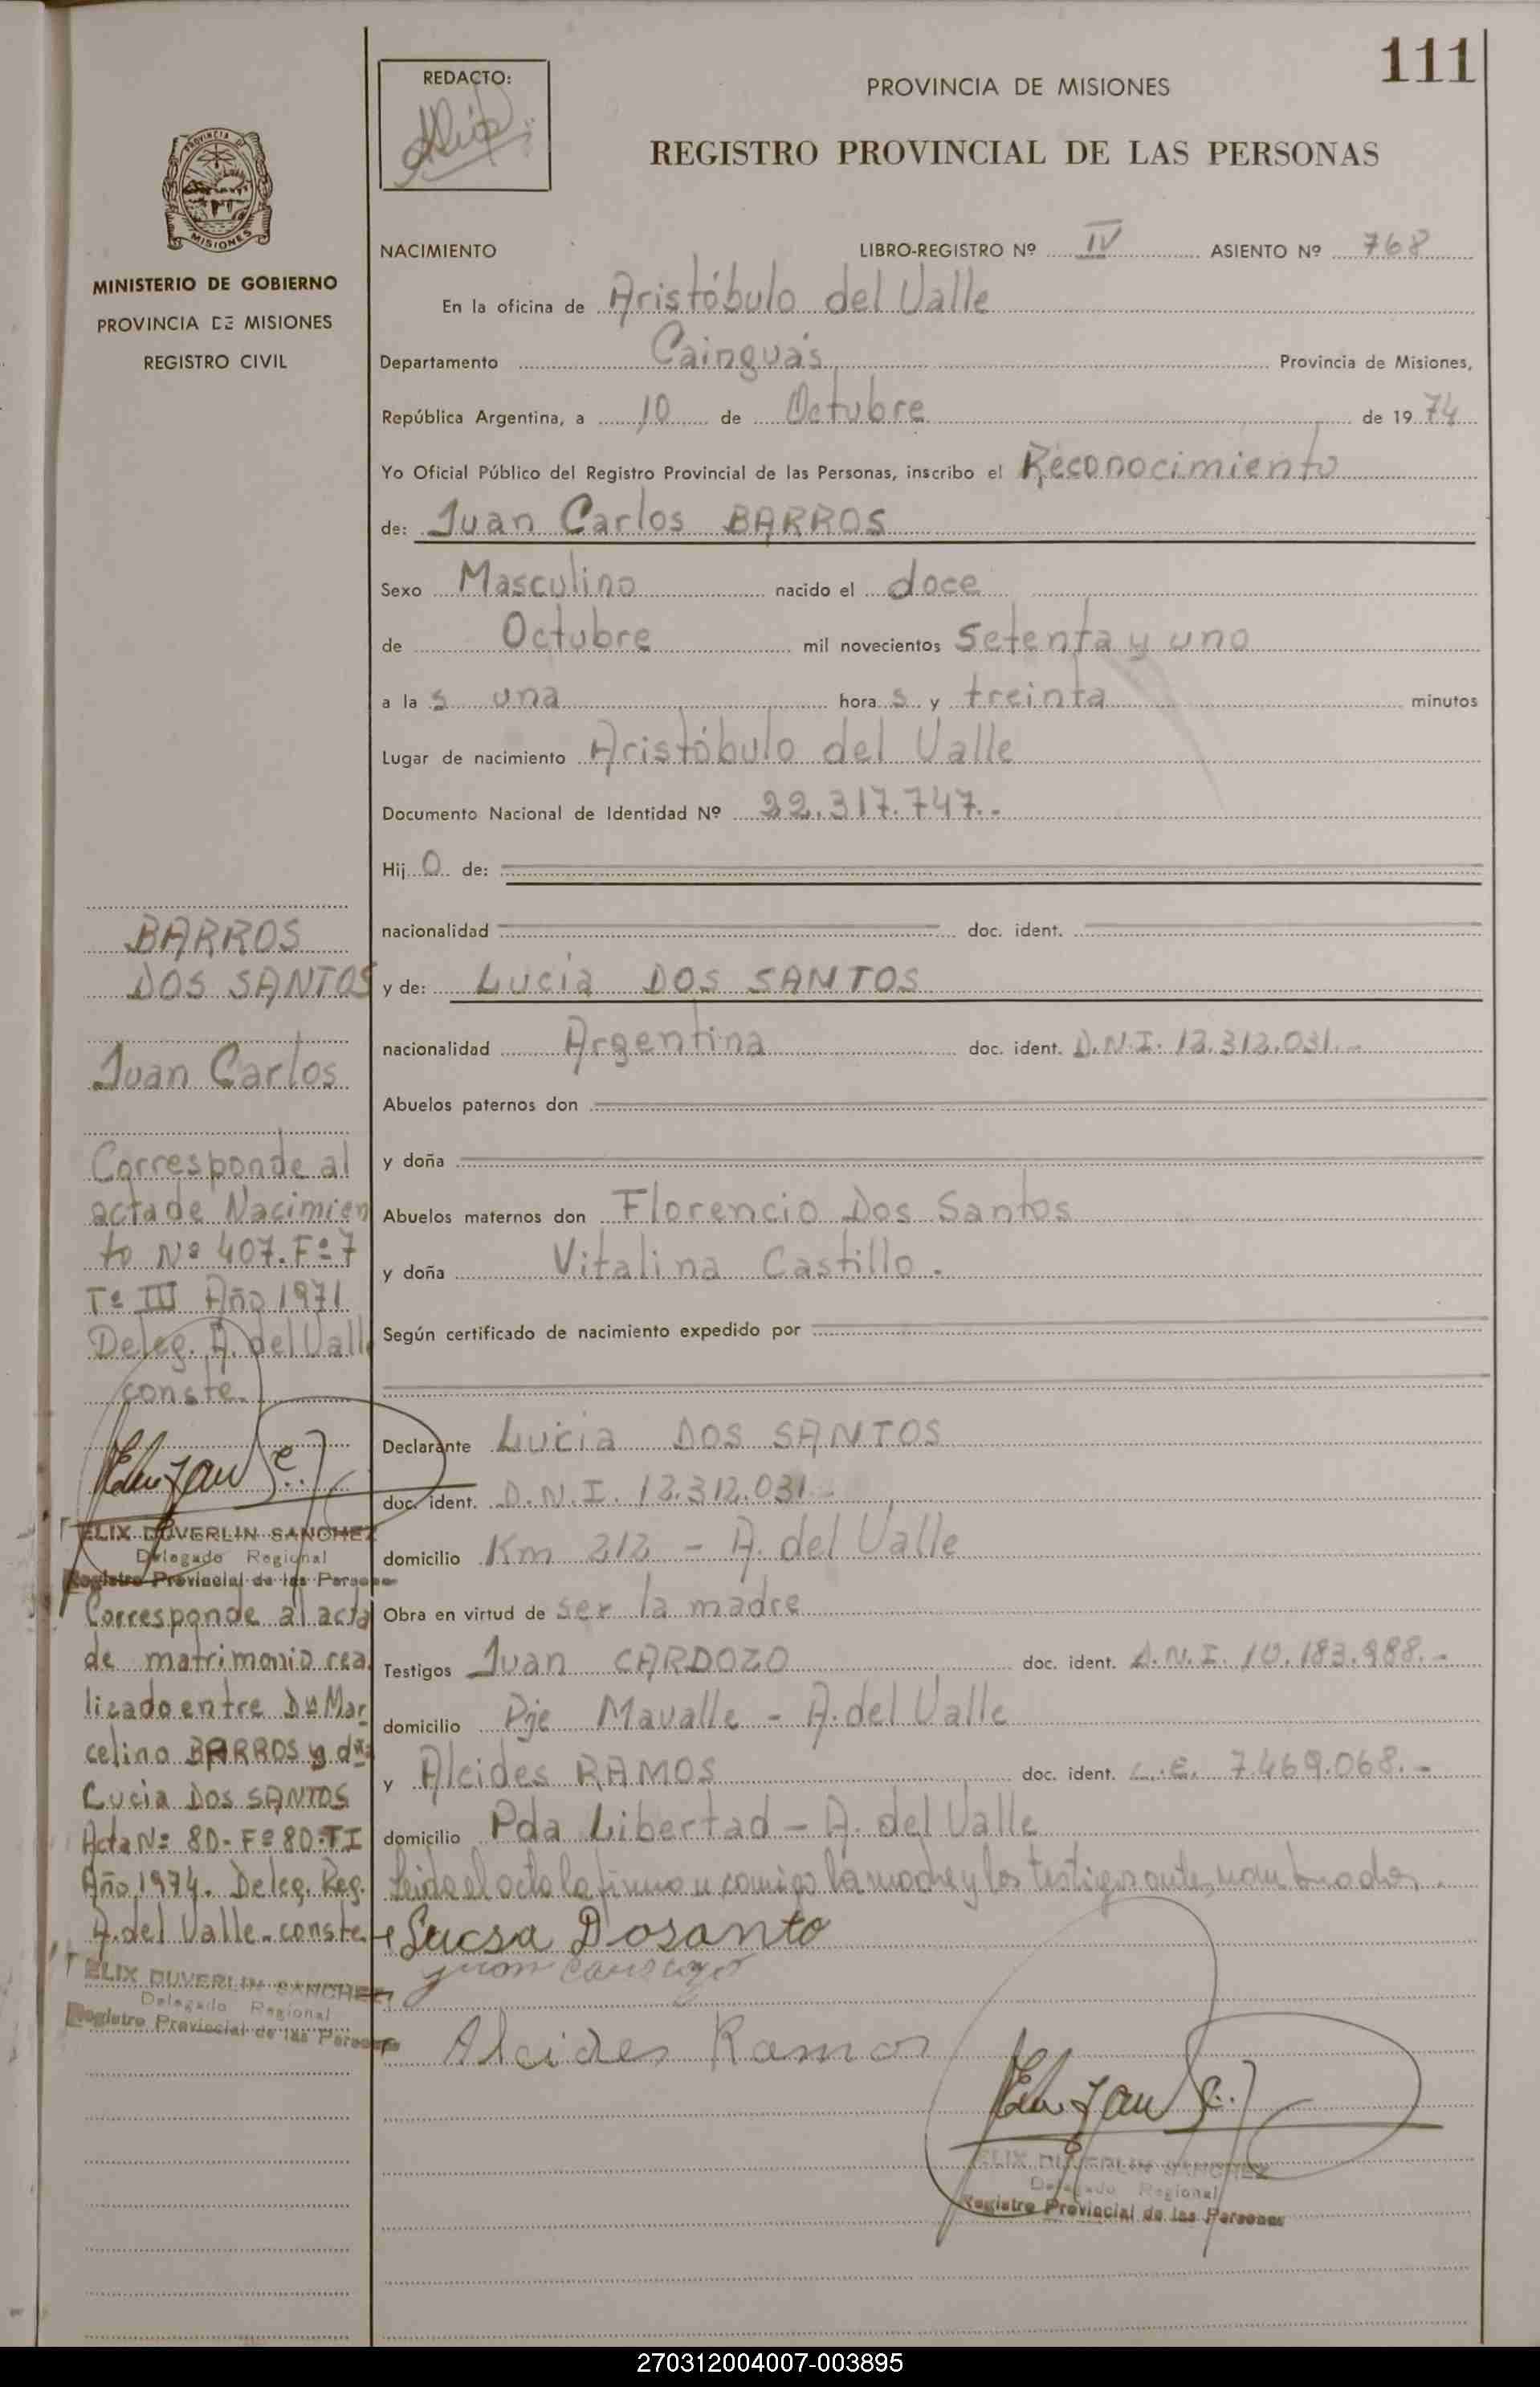 111
REDACTO:
PROVINCIA DE MISIONES
REGISTRO PROVINCIAL DE LAS PERSONAS
PROVINCIA DE
MISIONES
MINISTERIO DE GOBIERNO
PROVINCIA DE MISIONES
REGISTRO CIVIL
NACIMIENTO LIBRO-REGISTRO Nº IV ASIENTO Nº 768
En la oficina de Aristóbulo del Valle
Departamento Cainguás Provincia de Misiones,
República Argentina, a 10 de Octubre de 1974
Yo Oficial Público del Registro Provincial de las Personas, inscribo el Reconocimiento
de: Juan Carlos BARROS
Sexo Masculino nacido el doce
de Octubre mil novecientos setenta y uno
a la s una hora s y treinta minutos
Lugar de nacimiento Aristóbulo del Valle
Documento Nacional de Identidad Nº 22.317.747.-
Hij o de:
nacionalidad doc. ident.
y de: Lucia DOS SANTOS
nacionalidad Argentina doc. ident. D.N.I. 12.312.031.-
Abuelos paternos don
y doña
Abuelos maternos don Florencio Dos Santos
y doña Vitalina Castillo.
Según certificado de nacimiento expedido por
Declarante Lucia DOS SANTOS
doc. ident. D.N.I. 12.312.031.-
domicilio Km 212 - A. del Valle
Obra en virtud de ser la madre
Testigos Juan CARDOZO doc. ident. D.N.I. 10.183.988.-
domicilio Pje Mavalle - A. del Valle
y Alcides RAMOS doc. ident. L.E. 7.469.068.-
domicilio Pda Libertad - A. del Valle
Leida el acta la firman conmigo la madre y los testigos antes nombrados.
Lucsa Dosanto
Juan Cardozo
Alcides Ramos
ELIX DUVERLIN SANCHEZ
Delegado Regional
Registro Provincial de las Personas
BARROS
DOS SANTOS
Juan Carlos
Corresponde al
acta de Nacimien
to Nº 407. Fº 7
Tº III Año 1971
Deleg. A. del Valle
conste.
FELIX DUVERLIN SANCHEZ
Delegado Regional
Registro Provincial de las Persona
Corresponde al acta
de matrimonio rea
lizado entre Dn Mar
celino BARROS y dña
Lucia Dos SANTOS
Acta Nº 80- Fº 80-TI
Año 1974. Deleg. Reg.
A. del Valle. conste
FELIX DUVERLIN SANCHEZ
Delegado Regional
Registro Provincial de las Persona
270312004007-003895